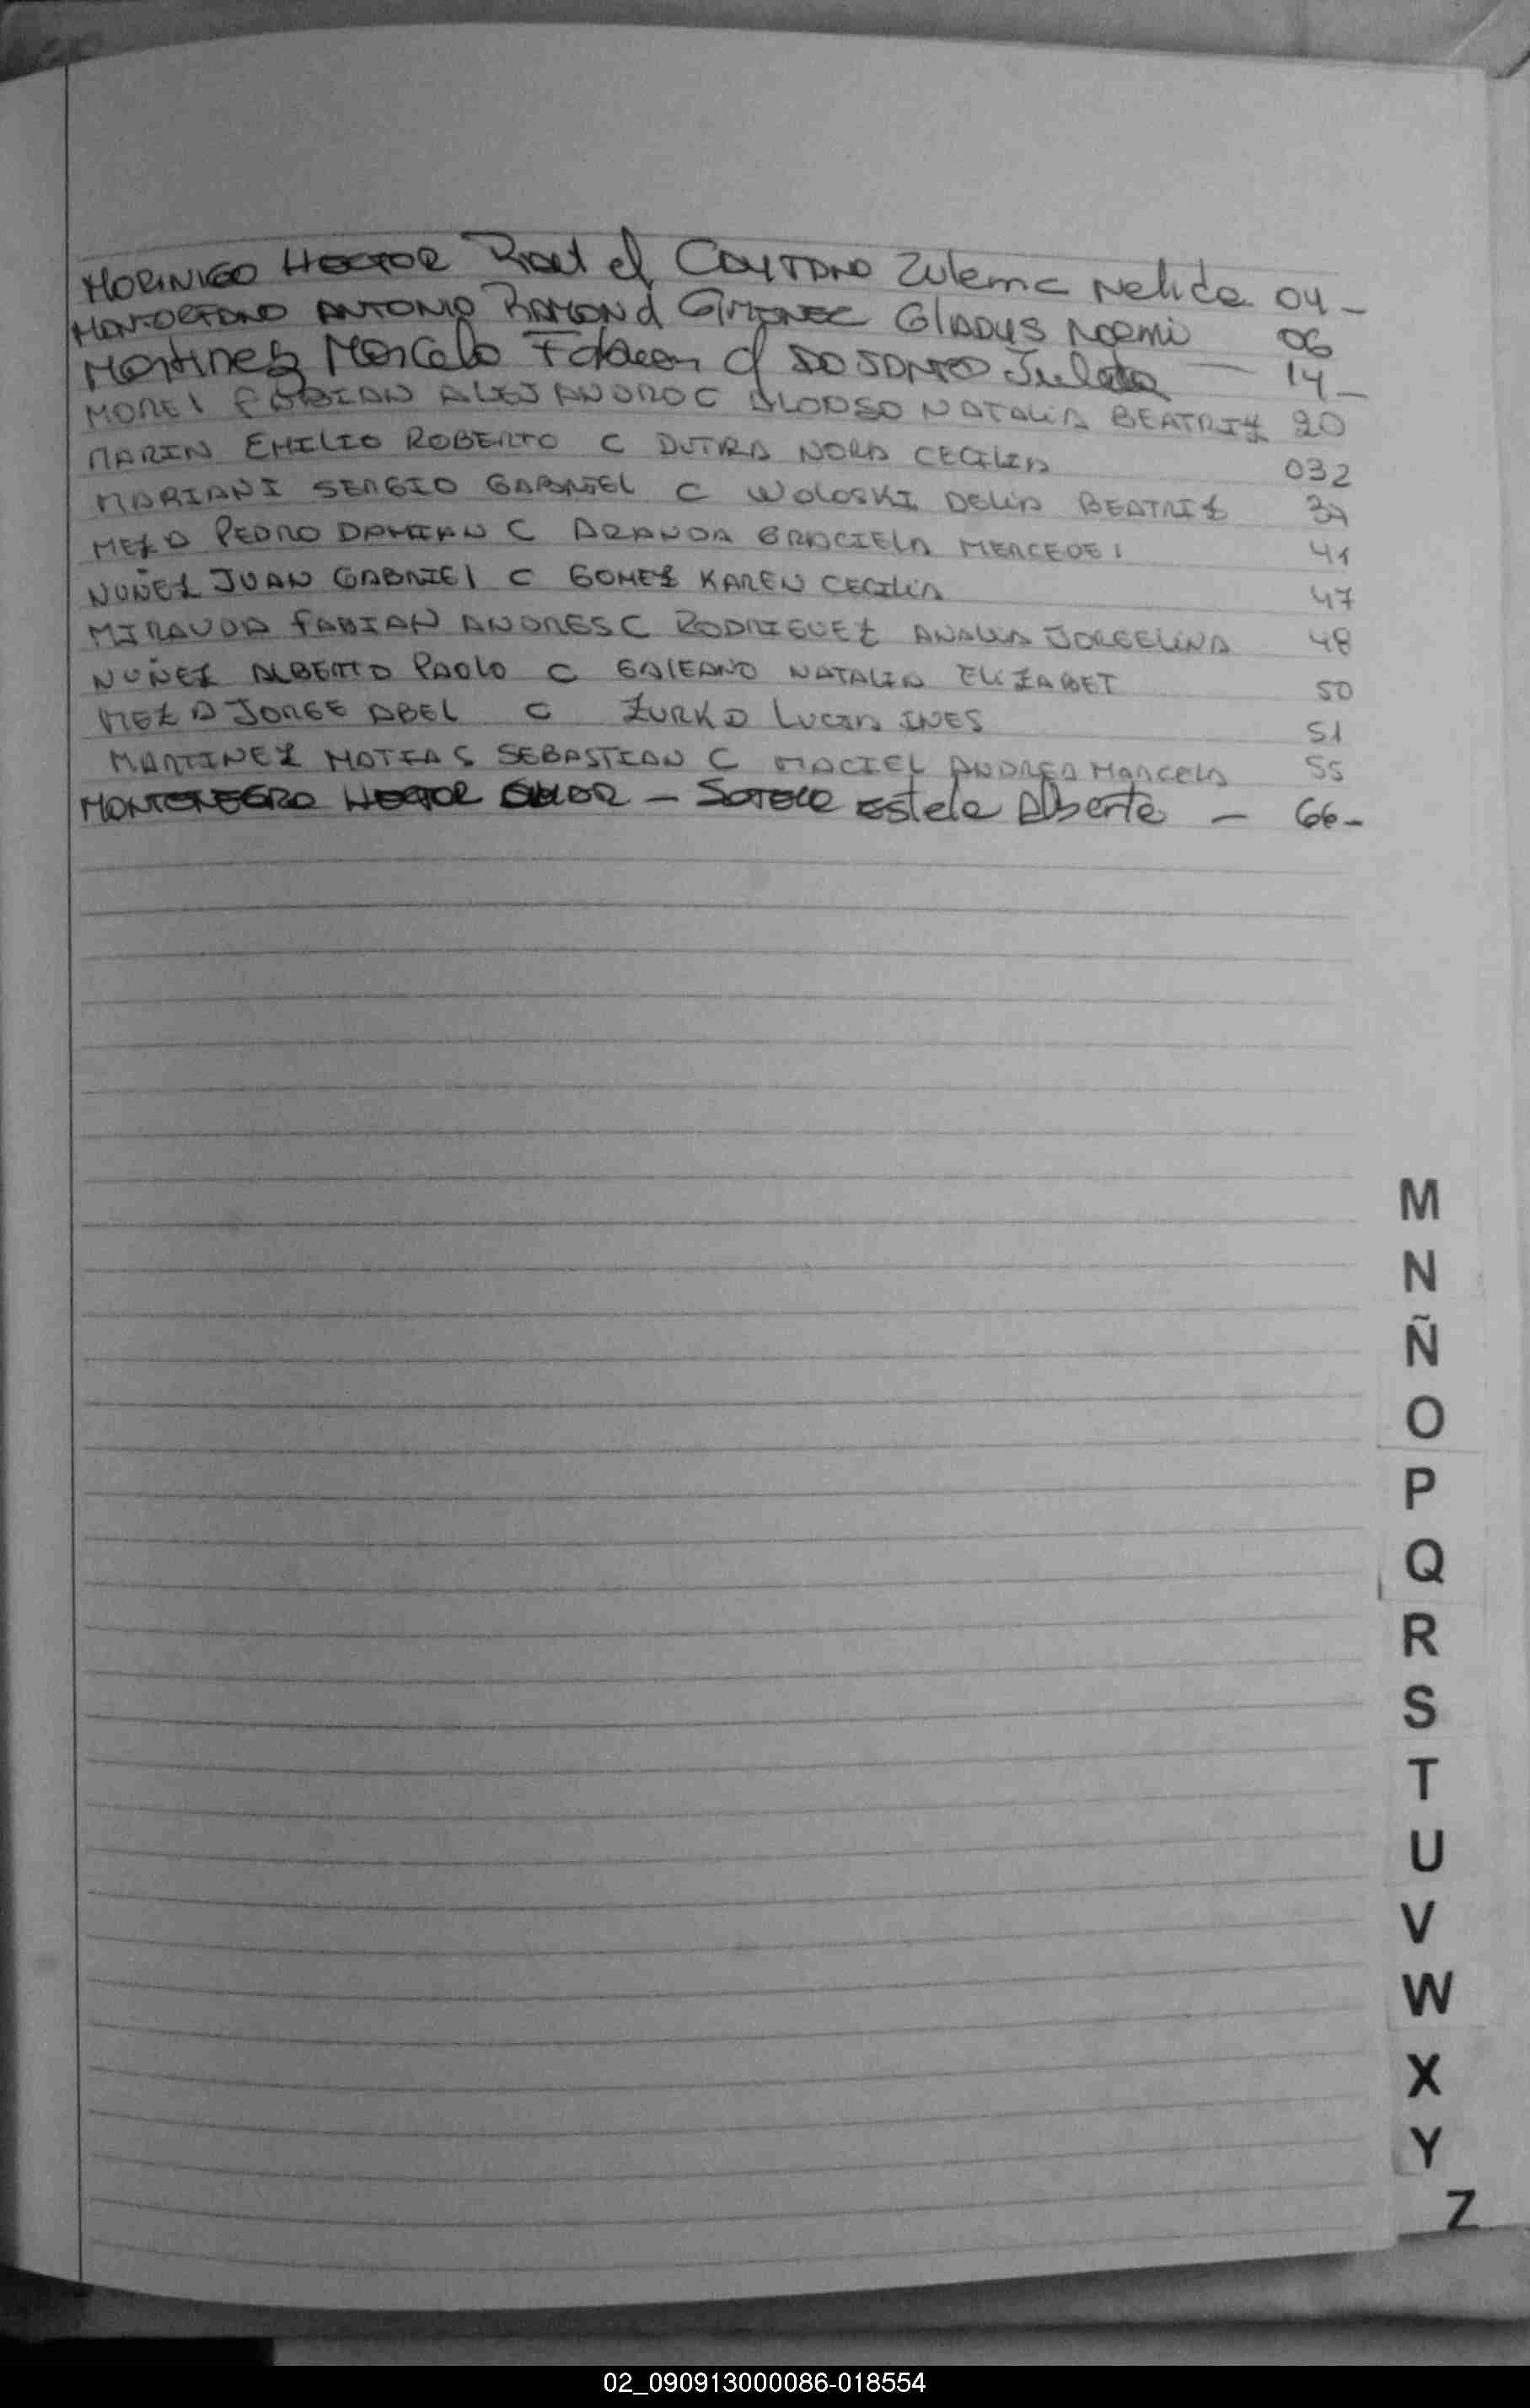 MORINIGO HECTOR Raul c/ CAYTANO Zulema Nelida 04 -
ANTONIO RAMON c/ GIMENEZ GLADYS Noemi 06
Martinez Marcelo Fabian c/ Julieta — 14 -
MOREL FABIAN ALEJANDRO C ALONSO NATALIA BEATRIZ 20
MARIN EMILIO ROBERTO C DUTRA NORA CECILIA 032
MARIANI SERGIO GABRIEL C WOLOSKI DELIA BEATRIZ 39
MEZA PEDRO DAMIAN C ARANDA GRACIELA MERCEDES 41
NUÑEZ JUAN GABRIEL C GOMEZ KAREN CECILIA 47
MIRANDA FABIAN ANDRES C RODRIGUEZ ANALIA JORGELINA 48
NUÑEZ ALBERTO PAOLO C GALEANO NATALIA ELIZABET 50
MEZA JORGE ABEL C ZURKO LUCIA INES 51
MARTINEZ MATIAS SEBASTIAN C MACIEL ANDREA MARCELA 55
MONTENEGRO HECTOR - SOTELO Estela Alberta - 66-
M
N
Ñ
O
P
Q
R
S
T
U
V
W
X
Y
Z
02_090913000086-018554